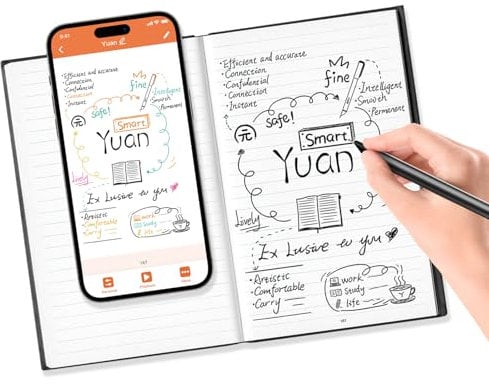 Yuan
•Efficient and accurate
•Connection
•Confidential
•Connection
•Instant
fine
•Intelligent
Smooth
Permanent
safe!
Smart
Yuan
Lively
Ex Lusive to you
•Artistic
•Comfortable
•Carry
work
Study
life
•Efficient and accurate
•Connection
•Confidential
•Connection
•Instant
fine
•Intelligent
•Smooth
Permanent
safe!
Smart
Yuan
Lively
Ex Lusive to you
•Artistic
•Comfortable
•Carry
work
Study
life